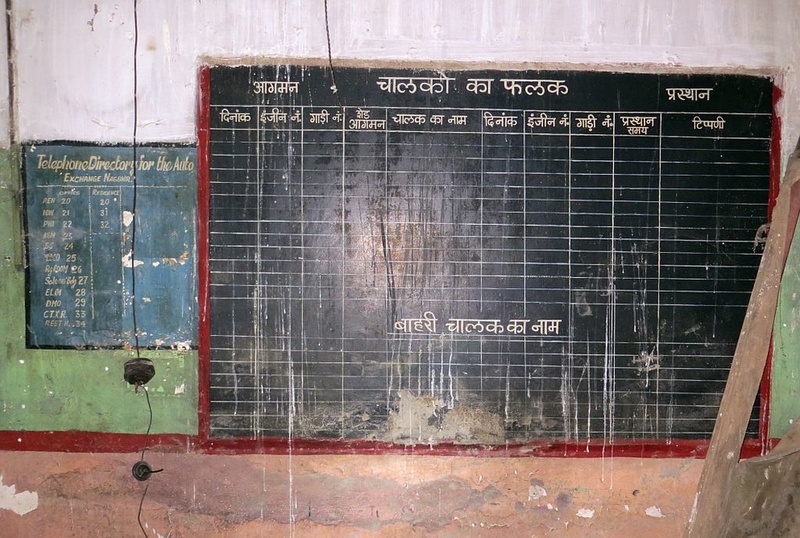 Telephone Directory for the Auto
EXCHANGE NAGBHIR
OFFICE RESIDENCE
AEN 20 20
21 31
22 32
23
24
25
26
27
ELCM 28
DMO 29
C.T.X.R. 33
REST H. 34
आगमन चालकों का फलक प्रस्थान
दिनांक इंजीन नं. गाड़ी नं. शेड आगमन चालक का नाम दिनांक इंजीन नं. गाड़ी नं. प्रस्थान समय टिप्पणी
बाहरी चालक का नाम